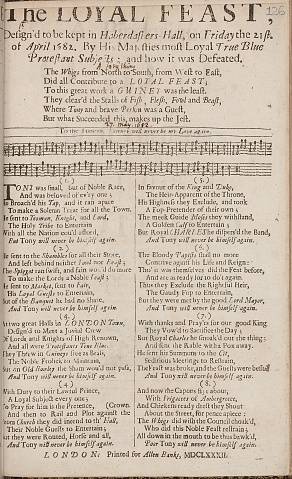 126
The LOYAL FEAST,
Design'd to be kept in Haberdashers-Hall, on Friday the 21st.
of April 1682. By His Majesties most Loyal True Blue
Protestant Subjects; and how it was Defeated.
The Whigs from North to South, from West to East,
Did all Contribute to a LOYAL FEAST,
To this great work a GUINEY was the least.
They clear'd the Stalls of Fish, Flesh, Fowl and Beast,
Where Tony and brave Perkin was a Guest,
But what Succeeded this, makes up the Jest.
1682
(1.)
TONI was small, but of Noble Race,
And was beloved of ev'ry one;
He Broach'd his Tap, and it ran apace
To make a Solemn Treat for all the Town.
He sent to Yeoman, Knight, and Lord,
The Holy Tribe to Entertain
With all the Nation could afford,
But Tony will never be himself again.
(2.)
He sent to the Shambles for all their Store,
And left behind neither Loyal nor Feast;
The Spiggot ran swift, and fain would do more
To make the Lords a Noble Feast:
He sent to Market, East to Fair,
His Loyal Guests to Entertain,
But of the Banquet he had no Share,
And Tony will never be himself again.
(3.)
At two great Halls in LONDON Town,
Design'd to Meet a Jovial Crew
Of Lords and Knights of High Renown,
And all were Protestants True Blue.
They Threw in Guineys free as Beads,
The Noble Frolick to Maintain,
But an Old Hurley the Sham would not pass,
And Tony will never be himself again.
(4.)
With Duty to their Lawful Prince,
A Loyal Subject every one;
To Pray for him is the Pretence,
(Crown.
And then to Rail and Plot against the
From Church they did intend to th' Hall,
Their Noble Guests to Entertain;
But they were Routed, Horse and all,
And Tony will never be himself again.
(5.)
In favour of the King and Duke,
The Heir-Apparent of the Throne,
His Highness they Exclude, and took
A Fop-Pretender of their own;
The meek Guide Moses they withstand,
A Golden Calf to Entertain;
But Royal CHARLES he dispers'd the Band,
And Tony will never be himself again.
(6.)
The Bloody Papists shall no more
Contrive against his Life and Reign;
Tho' it was themselves did the Feat before,
And are ready for to do't again.
Thus they Exclude the Rightful Heir,
The Gaudy Fop to Entertain,
But they were met by the good Lord Mayor,
And Tony will never be himself again.
(7.)
With thanks and Pray'rs for our good King
They Vow'd to Sacrifice the Day;
But Royal Charles he smouk'd out the thing;
And sent the Rabble with a Pox away.
He sent his Summons to the Cit,
Seditious Meetings to Restrain,
The Feast was broke, and the Guests were besh-t
And Tony will never be himself again.
(8.)
And now the Capons fly about,
With Fricacees of Ambergreece,
And Chickens ready drest they Shout
About the Street, for pence a piece:
The Whigs did with the Council thank'd,
Who did this Noble Feast restrain;
All down in the mouth to be thus bawk'd,
For Tony will never be himself again.
LONDON: Printed for Allen Banks, MDCLXXXII.